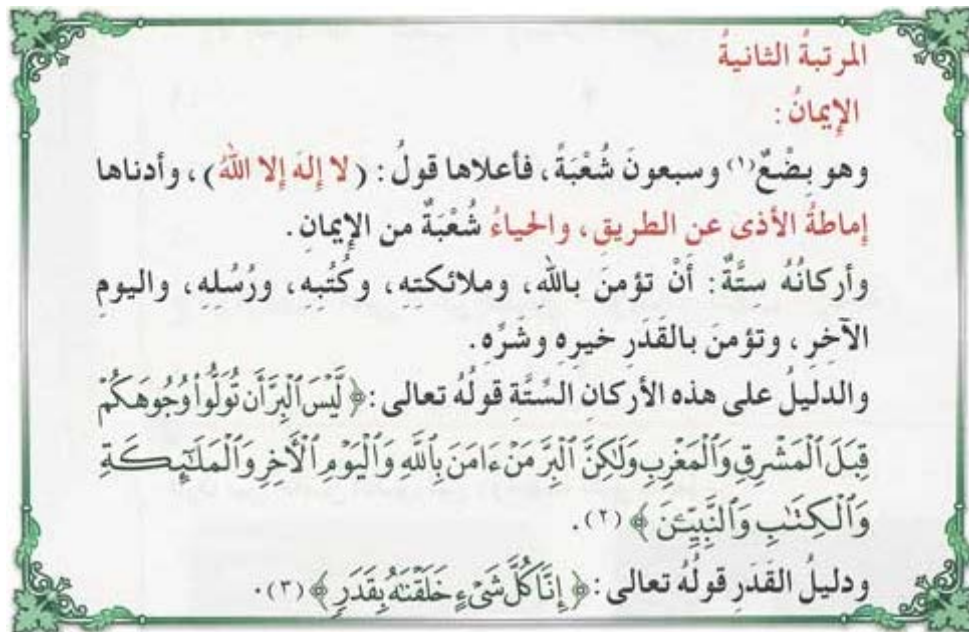 المرتبةُ الثانيةُ
الإيمانُ :
وهو بِضْعٌ(١) وسبعونَ شُعْبَةً ، فأعلاها قولُ : (لا إلهَ إلا اللهُ) ، وأدناها
إماطةُ الأذى عن الطريقِ ، والحياءُ شُعْبَةٌ من الإيمانِ .
وأركانُهُ سِتَّةٌ : أَنْ تؤمنَ باللهِ ، وملائكتِهِ ، وكُتُبِهِ ، ورُسُلِهِ ، واليومِ
الآخرِ ، وتؤمنَ بالقَدَرِ خيرِهِ وشَرِّهِ .
والدليلُ على هذه الأركانِ السِّتَّةِ قولُهُ تعالى : ﴿ لَّيْسَ ٱلْبِرَّ أَن تُوَلُّوا۟ وُجُوهَكُمْ
قِبَلَ ٱلْمَشْرِقِ وَٱلْمَغْرِبِ وَلَٰكِنَّ ٱلْبِرَّ مَنْ ءَامَنَ بِٱللَّهِ وَٱلْيَوْمِ ٱلْأَخِرِ وَٱلْمَلَٰٓئِكَةِ
وَٱلْكِتَٰبِ وَٱلنَّبِيِّـۧنَ ﴾ (٢) .
ودليلُ القَدَرِ قولُهُ تعالى : ﴿ إِنَّا كُلَّ شَىْءٍ خَلَقْنَٰهُ بِقَدَرٍ ﴾ (٣) .